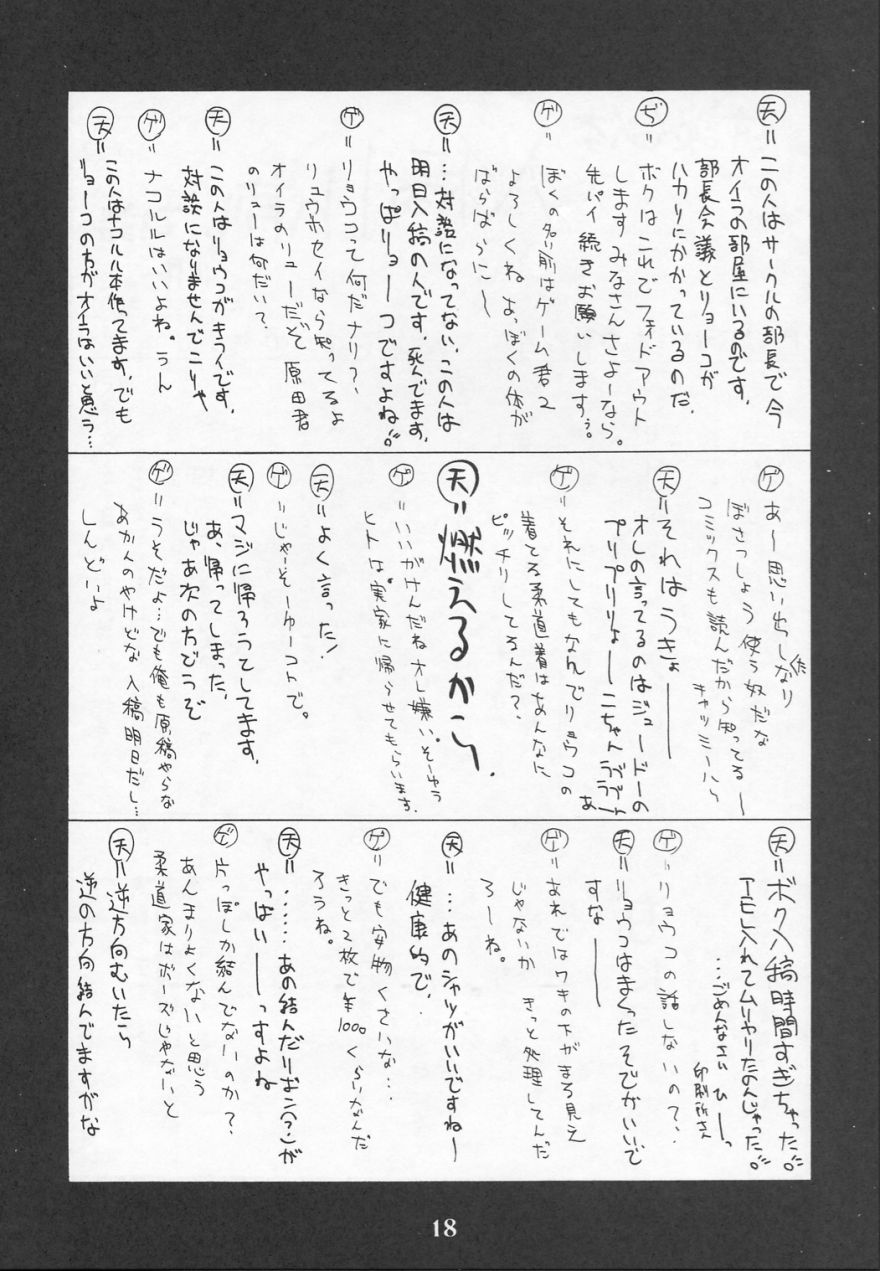 天＝この人はサークルの部長で今
オイラの部屋にいるのです。
部長会議とリョーコが
ハカリにかかっているのだ。
ぢ＝ボクはこれでフェイドアウト
します みなさんさよーなら。
先パイ続きお願いしますぅ。
ゲ＝ぼくの名前はゲーム君2
よろしくね あ、ぼくの体が
ばらばらに〜
天＝…対談になってない、この人は
明日入稿の人です、死んでます。
やっぱリョーコですよね。
ゲ＝リョウコって何だナリ？、
リュウホセイなら知ってるよ
オイラのリューだぞ 原田君
のリューは何だい？
天＝この人はリョウコがキライです。
対談になりませんでこりゃ
ゲ＝ナコルルはいいよね。うん
天＝この人はナコルル本作ってます。でも
リョーコの方がオイラはいいと思う…
ゲ＝あー思い出しなり
ぼさつしょう使う奴だな
コミックスも読んだから知ってるー
キャッミーハら
天＝それはうきょ―――
オレの言ってるのはジュードーの
プリプリリょーこちゃんううう
ゲ＝それにしてもなんでリョウコの
着てる柔道着はあんなに
ピッチリしてるんだ？、
天＝燃えるから。
ゲ＝いいかげんだねオレ嫌い。そーゆう
ヒトは実家に帰らせてもらいます。
天＝よく言った！
ゲ＝じゃーそーゆーコトで。
天＝マジに帰ろうてしてます。
あ、帰ってしまった、
じゃあ次の方どうぞ
ゲ＝うそだよ…でも俺も原稿やらな
あかんのやけどな 入稿明日だし…
しんどいよ
天＝ボク入稿時間すぎちゃった
アモレ入れてムリヤリたのんじゃった
…ごめんなさい ひーっ
印刷所さん
ゲ＝リョウコの話しないので、、
天＝リョウコはまくったそでがいいで
すな―――
ゲ＝あれではワキの下がまる見え
じゃないか きっと処理してんだ
ろーね。
天＝…あのシャツがいいですねー
健康的で、
ゲ＝でも安物くさいな…
きっと2枚で￥1000くらいなんだ
ろうね。
天＝……あの結んだリボン(?)が
やっぱい――っすよね
ゲ＝片っぽしか結んでないのか？、
あんまりよくないと思う
柔道家はボーズじゃないと
天＝逆方向むいたら
逆の方向結んでますがな
18